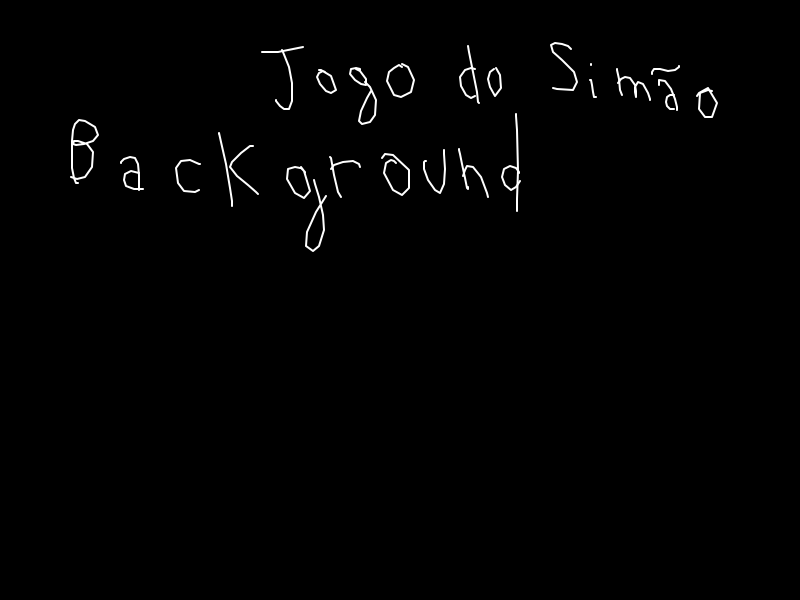 Jogo do Simão
Background